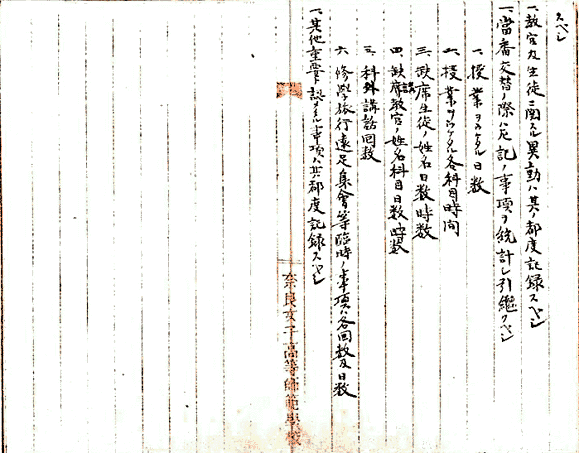 スベシ
一、教官及生徒ニ関スル異動ハ其ノ都度記録スベシ
一、當番交替ノ際ハ左記ノ事項ヲ統計シ引継グベシ
一、授業ヲウケタル日数
二、授業ヲウケタル各科目時間
三、欠席生徒ノ姓名日数時数
四、欠席教官ノ姓名科目日数時数
五、科外講話回数
六、修學旅行遠足集會等臨時ノ事項ハ各回数及日数
一、其他重要ト認メタル事項ハ其都度記録スベシ
奈良女子高等師範學校